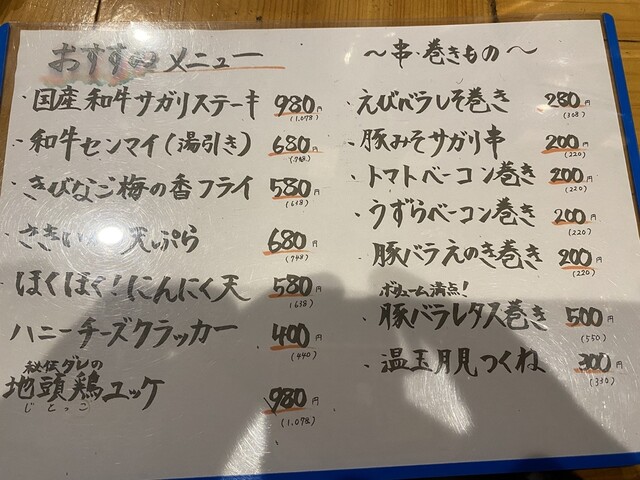 おすすめメニュー
・国産和牛サガリステーキ 980円
(1,078)
・和牛センマイ(湯引き) 680円
(748)
・きびなご梅の香フライ 580円
(638)
・さきいか天ぷら 680円
(748)
・ほくほく!にんにく天 580円
(638)
ハニーチーズクラッカー 400円
(440)
秘伝ダレの
地頭鶏ユッケ 980円
じとっこ
(1,078)
〜串・巻きもの〜
・えびバラしそ巻き 280円
(308)
・豚みそサガリ串 200円
(220)
・トマトベーコン巻き 200円
(220)
・うずらベーコン巻き 200円
(220)
・豚バラえのき巻き 200円
(220)
ボリューム満点!
・豚バラレタス巻き 500円
(550)
・温玉月見つくね 300円
(330)